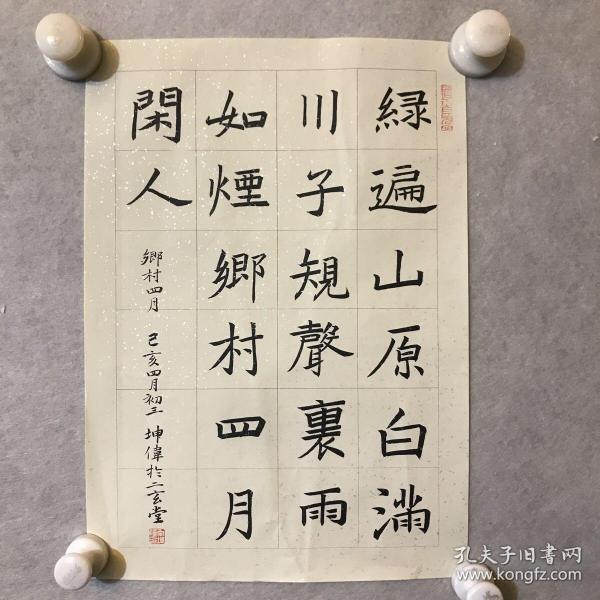 緑遍山原白滿
川子規聲裏雨
如煙鄉村四月
閑人
鄉村四月 己亥四月初三 坤偉於二玄堂
孔夫子旧书网
www.kongfz.com